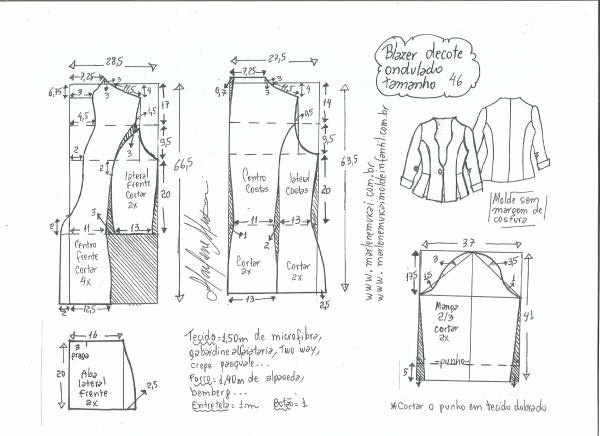 28,5
7,25
3
11,5
4
6,75
9
3
17
4,5
4,5
3
9,5
2
2
lateral
Frente
cortar
2x
20
66,5
3
11
13
Centro
frente
cortar
4x
2
2
12,5
27,5
7,25
0,7
3
11,5
4
14
0,5
9,5
63,5
Centro
Costas
lateral
Costas
20
11
13
1
2
Cortar
2x
Cortar
2x
13
2,5
Blazer decote
ondulado
tamanho 46
www.marlenemukai.com.br
www.marlenemukaimoldeinfantil.com.br
Molde sem
margem de
costura
37
17,5
3
3,5
1,5
1
Manga
2/3
cortar
2x
41
=punho=
5
*Cortar o punho em tecido dobrado
16
3
prega
20
Aba
lateral
frente
2x
2,5
Tecido=1,50m de microfibra,
gabardine alfaiataria, Two way,
crepe pasquale...
Forro=1,40m de alpaseda,
bemberg...
Entretela=1m Botão=1